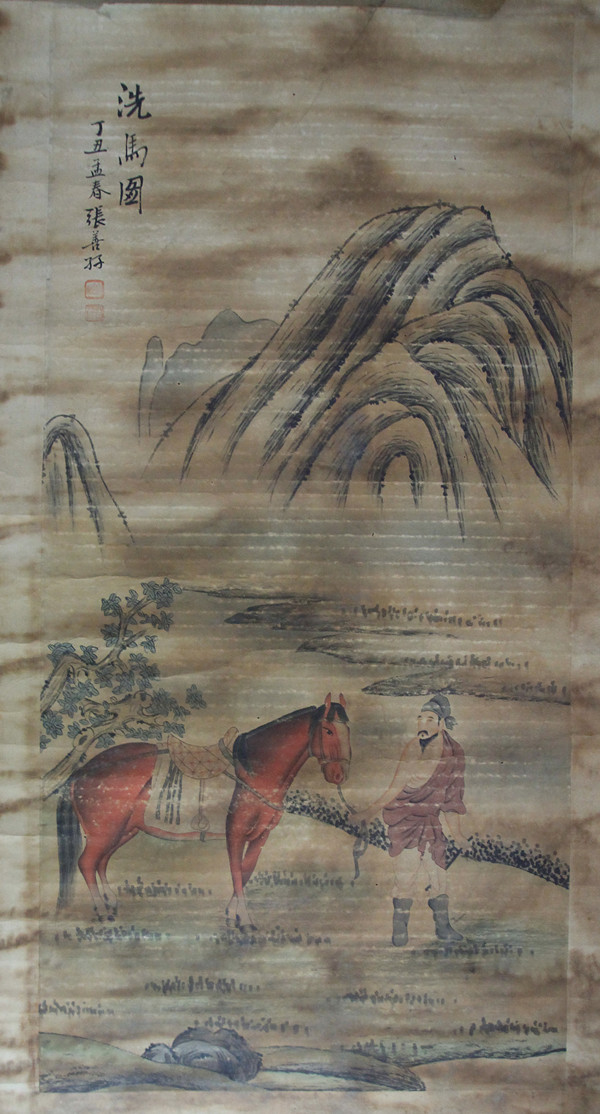 洗馬圖
丁丑孟春張善孖